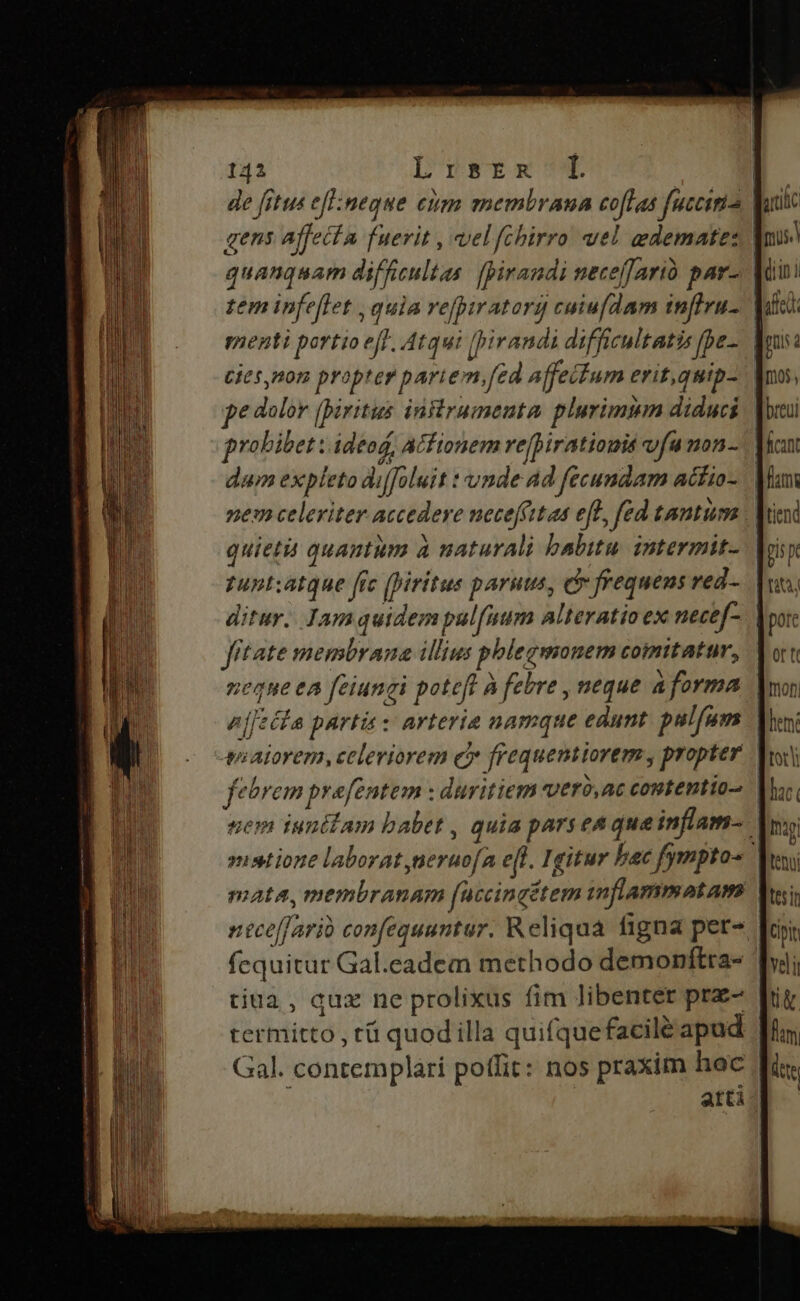 142 LIBER I.
de ſitus eſt: neque cùm membrana coſtas ſuccin-
gens affecta fuerit, vel ſchirro vel ædemate:
quanquam difficultas ſpirandi neceſſariò par-
tem infeſtet, quia reſpiratorij cuiuſdam inſtru-
menti portio eſt. Atqui ſpirandi difficultatis ſpe-
cies, non propter partem, ſed affectum erit, quip-
pe dolor ſpiritus inſtrumenta plurimùm diduci
prohibet: ideoq́; actionem reſpirationis vſu non-
dum expleto diſſoluit: vnde ad ſecundam actio-
nem celeriter accedere neceſſitas eſt, ſed tantùm
quietis quantùm à naturali habitu intermit-
tunt: atque ſic ſpiritus paruus, & frequens red-
ditur. Iam quidem pulſuum alteratio ex neceſ-
ſitate membranæ illius phlegmonem comitatur,
neque ea ſeiungi poteſt à febre, neque à forma
affectæ partis: arteriæ namque edunt pulſum
maiorem, celeriorem & frequentiorem, propter
febrem præſentem: duritiem verò, ac contentio-
nem iunctam habet, quia pars ea quæ inflam-
matione laborat, neruoſa eſt. Igitur hæc ſympto-
mata, membranam ſuccingẽtem inflammatam
neceſſariò conſequuntur. Reliqua ſigna per-
ſequitur Gal. eadem methodo demonſtra-
tiua, quæ ne prolixus ſim libenter præ-
termitto, tũ quod illa quiſque facilè apud
Gal. contemplari poſſit: nos praxim hoc
atti